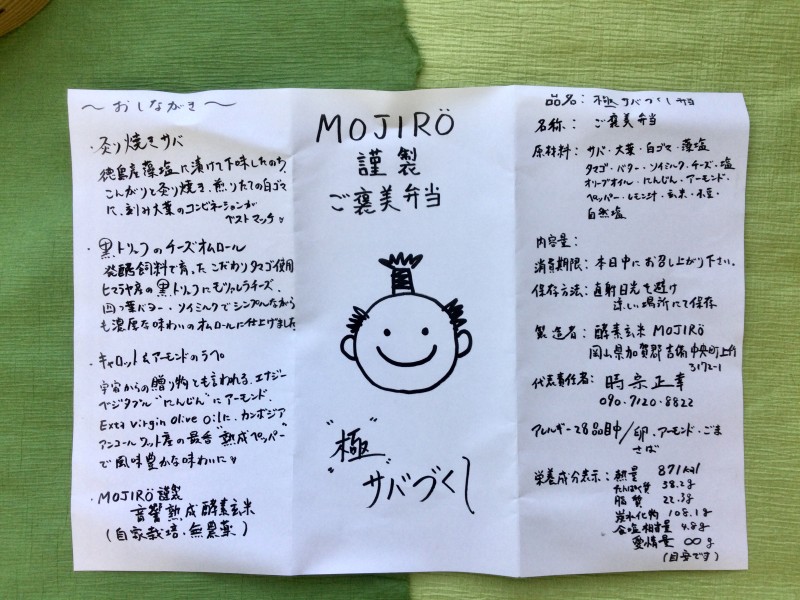 〜おしながき〜
・炙り焼きサバ
徳島産藻塩に漬けて下味したのち、
こんがりと炙り焼き、煎りたての白ゴマ
に、刻み大葉のコンビネーションが
ベストマッチ
・黒トリュフのチーズオムロール
発酵飼料で育ったこだわりタマゴ使用
ヒマラヤ産の黒トリュフにモッツァレラチーズ、
四つ葉バター・ソイミルクでシンプルながら
も濃厚な味わいのオムロールに仕上げました
・キャロット&アーモンドのラペ
宇宙からの贈り物とも言われる、エナジー
ベジタブル"にんじん"にアーモンド、
Exta Virgin Olive Oilに、カンボジア
アンコールワット産の最香"熟成ペッパー"
で風味豊かな味わいに
・MOJIRÖ謹製
音響熟成酵素玄米
(自家栽培・無農薬)
MOJIRÖ
謹製
ご褒美弁当
"極"
サバづくし
品名: 極サバづくし弁当
名称: ご褒美弁当
原材料: サバ・大葉・白ゴマ・藻塩
タマゴ・バター・ソイミルク・チーズ・塩
オリーブオイル・にんじん・アーモンド・
ペッパー・レモン汁・玄米・小豆・
自然塩
内容量:
消費期限: 本日中にお召し上がり下さい。
保存方法: 直射日光を避け
涼しい場所にて保存
製造者: 酵素玄米 MOJIRÖ
岡山県加賀郡吉備中央町上竹
3172-1
代表責任者: 時宗正幸
090-7120-8822
アレルギー28品目中/卵・アーモンド・ごま
さば
栄養成分表示: 熱量 871kcal
たんぱく質 38.2g
脂質 22.3g
炭水化物 108.1g
食塩相当量 4.8g
愛情量 ∞g
(目安です)